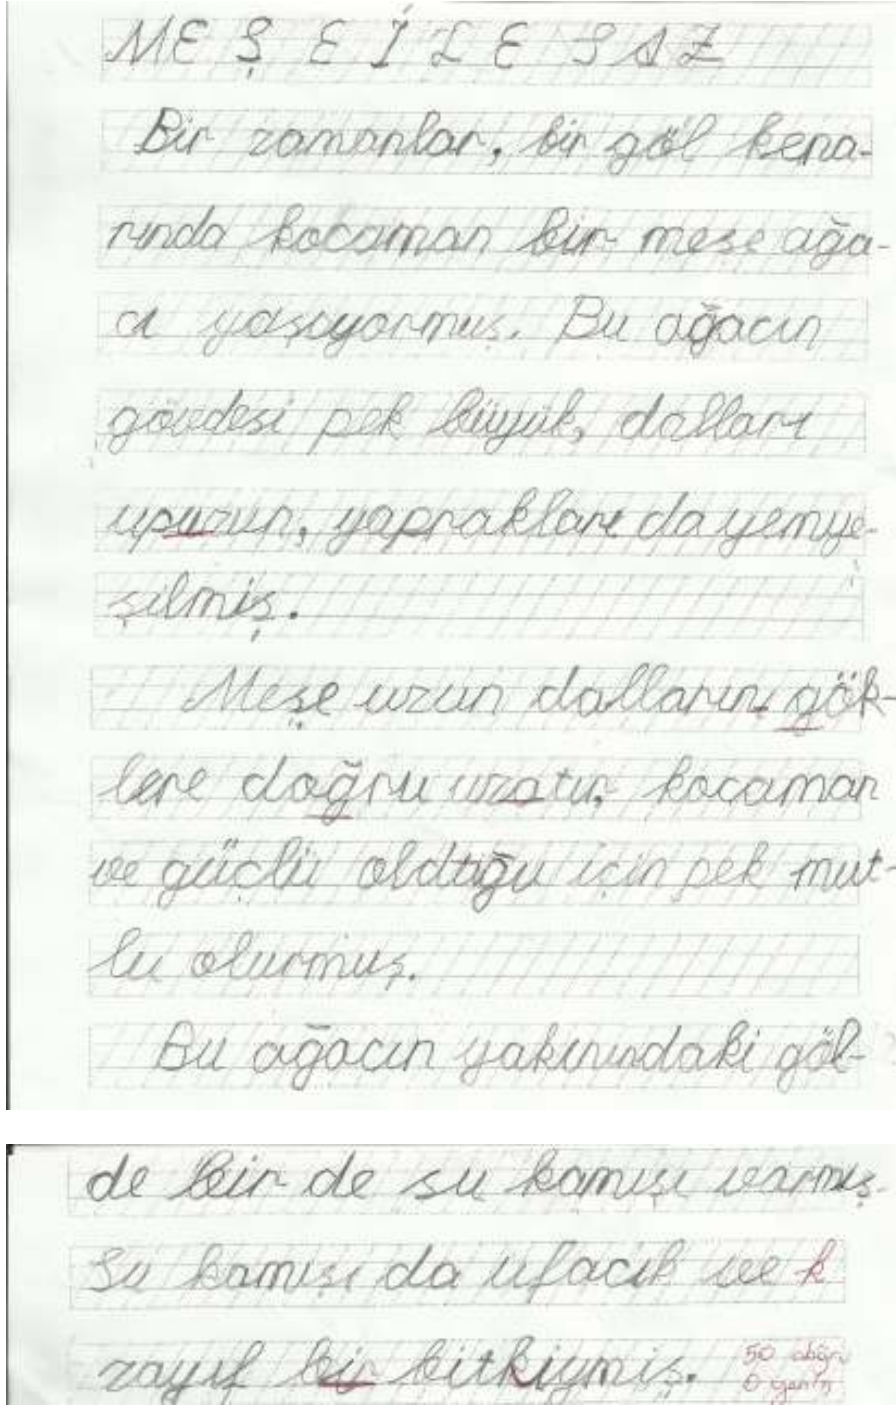 MEŞE İLE SAZ
Bir zamanlar, bir göl kena-
rında kocaman bir meşe ağa-
cı yaşıyormuş. Bu ağacın
gövdesi pek büyük, dalları
upuzun, yaprakları da yemye-
şilmiş.
Meşe uzun dallarını gök-
lere doğru uzatır, kocaman
ve güçlü olduğu için pek mut-
lu olurmuş.
Bu ağacın yakınındaki göl-
de bir de su kamışı varmış.
Su kamışı da ufacık ve k
zayıf bir bitkiymiş.
50 doğru
0 yanlış